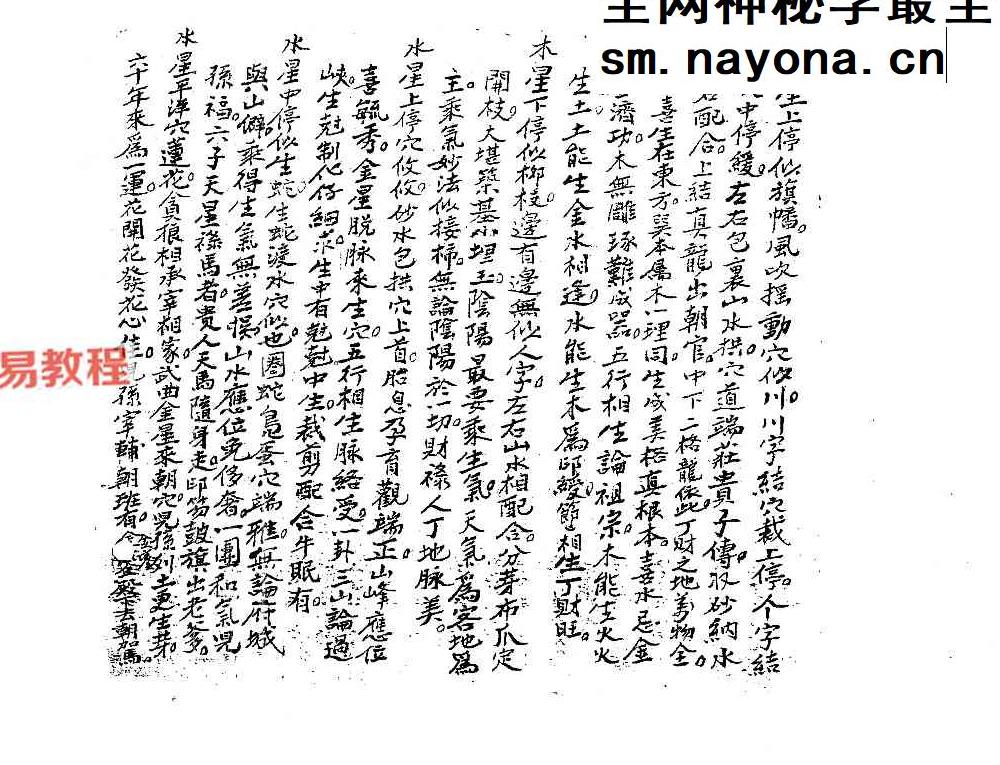 全网神秘学最全
sm.nayona.cn
星上停似旗幡。風吹摇動穴似川。川字結穴裁上停。个字結
中停緩。左右包裹山水拱。穴道端莊貴子傳。收砂納水
配合。上結真龍出朝官。中下二格龍依此。丁財之地萬物全。
喜生在東方。巽本屬木一理同。生成美格真根本。喜水忌金
濟功。木無雕琢難成器。五行相生論祖宗。木能生火火
生土。土能生金水相逢。水能生木為印綬。節節相生丁財旺。
木星下停似柳枝。邊有邊無似人字。左右山水相配合。分芽布爪定
開枝。大堪築基小埋玉。陰陽最要乘生氣。天氣為客地為
主。乘氣妙法似接柿。無論陰陽於一切。財祿人丁地脉美。
水星上停穴攸攸。砂水包拱穴上首。胎息孕育觀端正。山峰應位
喜毓秀。金星脱脉來生穴。五行相生脉絡受。一卦三山論過
峽。生尅制化仔細求。生中有尅尅中生。裁剪配合牛眠有。
水星中停似生蛇。生蛇渡水穴似也。圈蛇島蛋穴端雅。無論府城
與山僻。乘得生氣無差悮。山水應位免侈奢。一團和氣兒
孫福。六子天星祿馬者。貴人天馬隨身走。印笏鼓旗出老爹。
水星平洋穴蓮花。貪狼相承宰相家。武曲金星來朝穴。兒孫到土更生芽。
六十年來為一運。花開花發花心佳。兒孫宰輔朝班有。金 殿下去朝加馬。
易教程